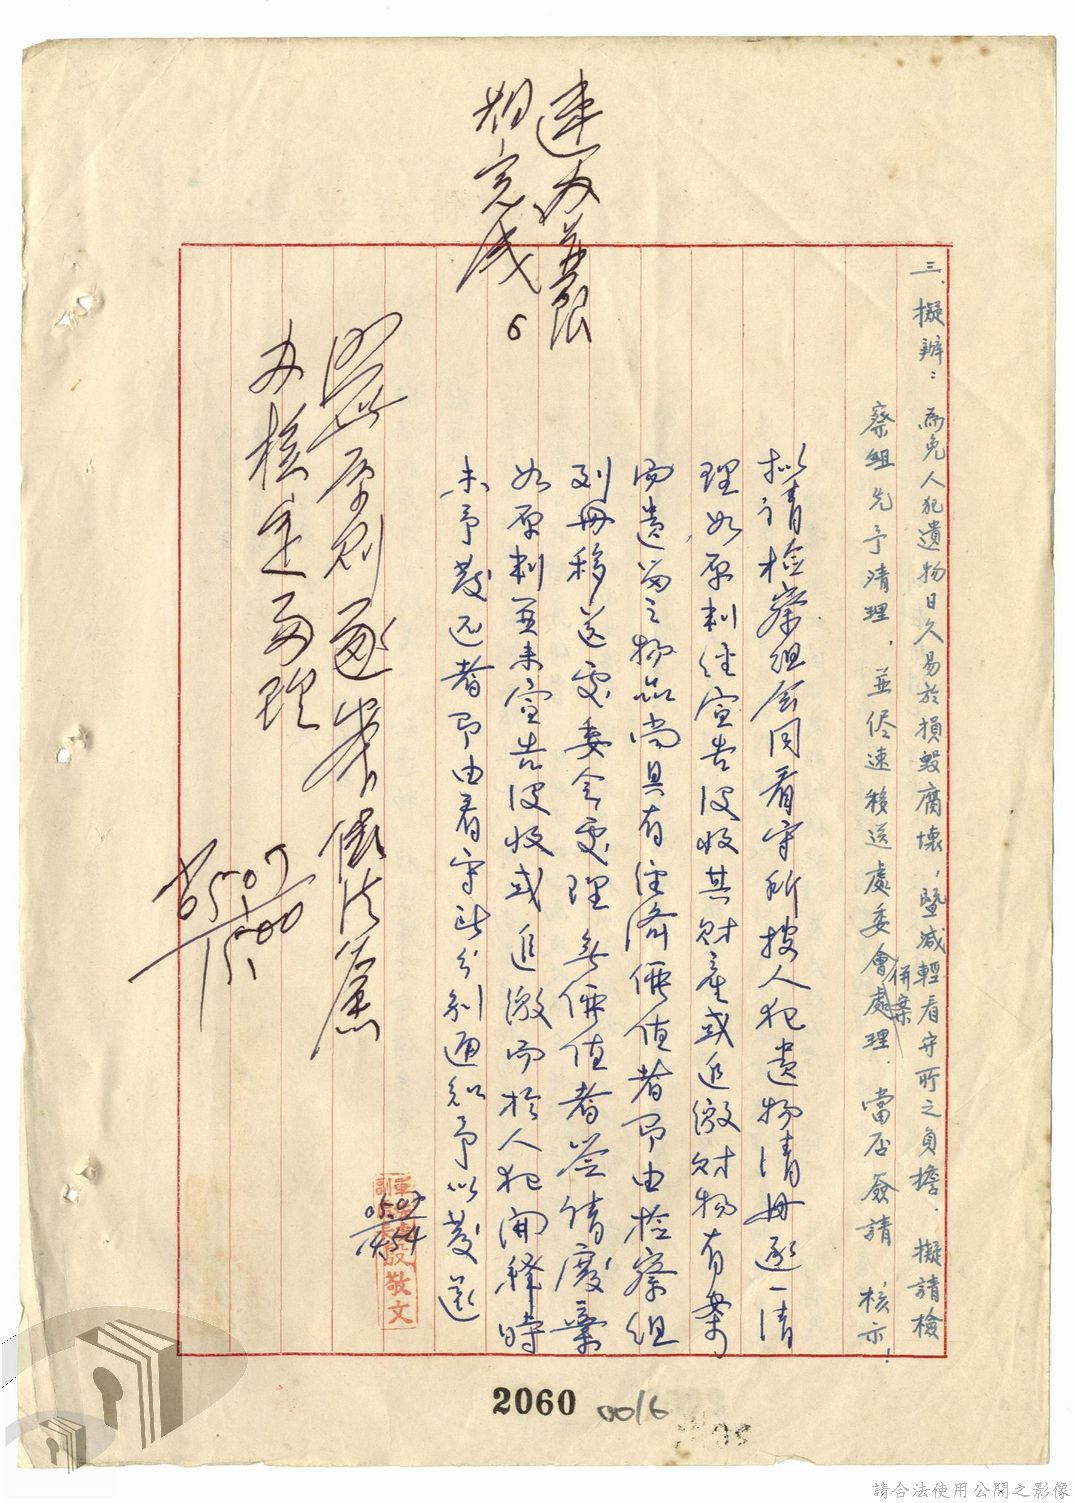 三、擬辦：為免人犯遺物日久易於損毀腐壞，暨減輕看守所之負擔．擬請檢
察組先予清理，並儘速移送處委會併案處理．當否簽請 核示！
擬請檢察組会同看守所搜人犯遺物清册逐一清
理如原判經宣告没收其財産或追繳財物有案，
而遺留之物品尚具有经濟價值者即由检察组
列册移送處委会處理無價值者签請廢棄
如原判並未宣告没收或追繳而於人犯開釋時
未予發还者即由看守所分别通知予以發還
0507
1454
敬文
速办並限
期完成
6
照此原则逐案依法簽
办核定处理
0507
1500
2060
0016
請合法使用公開之影像